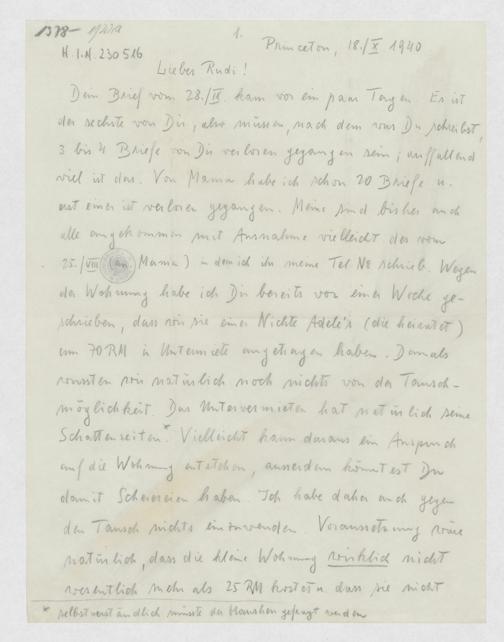 1378-
H.I.N. 230516
1.
Princeton, 18./X 1940
Lieber Rudi!
Dein Brief vom 28./IX kam vor ein paar Tagen. Es ist
der sechste von Dir, also müssen, nach dem was Du schreibst,
3 bis 4 Briefe von Dir verloren gegangen sein; auffallend
viel ist das. Von Mama habe ich schon 20 Briefe u.
erst einer ist verloren gegangen. Meine sind bisher auch
alle angekommen mit Ausnahme vielleicht des vom
25./VIII (an Mama) in dem ich ihr meine Tel № schrieb. Wegen
der Wohnung habe ich Dir bereits vor einer Woche ge-
schrieben, dass wir sie einer Nichte Adele's (die heiratet)
um 70 RM in Untermiete angetragen haben. Damals
wussten wir natürlich noch nichts von der Tausch-
möglichkeit. Das Untervermieten hat natürlich seine
Schattenseiten.* Vielleicht kann daraus ein Anspruch
auf die Wohnung entstehen, ausserdem könntest Du
damit Scherereien haben. Ich habe daher auch gegen
den Tausch nichts einzuwenden. Voraussetzung wäre
natürlich, dass die kleine Wohnung wirklich nicht
wesentlich mehr als 25 RM kostet u dass sie nicht
* selbstverständlich müsste der Hausherr gefragt werden